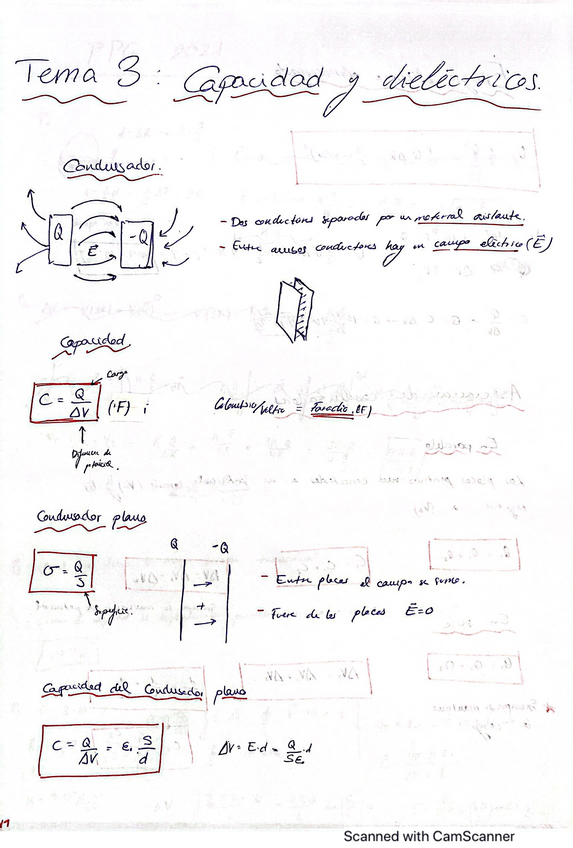 Tema 3: Capacidad y dieléctricos.
Condensador.
Q
E⃗
-Q
- Dos conductores separados por un material aislante.
- Entre ambos conductores hay un campo eléctrico (E⃗)
Capacidad
Carga
C = Q/ΔV (F) ;
Colombio/Voltio = Faradio (F)
Diferencia de potencial.
Condensador plano
Q -Q
σ = Q/S
Superficie.
+
- Entre placas el campo se suma.
- Fuera de las placas E⃗=0
Capacidad del Condensador plano
C = Q/ΔV = ε₀ · S/d
ΔV = E·d = Q/Sε₀ · d
Scanned with CamScanner